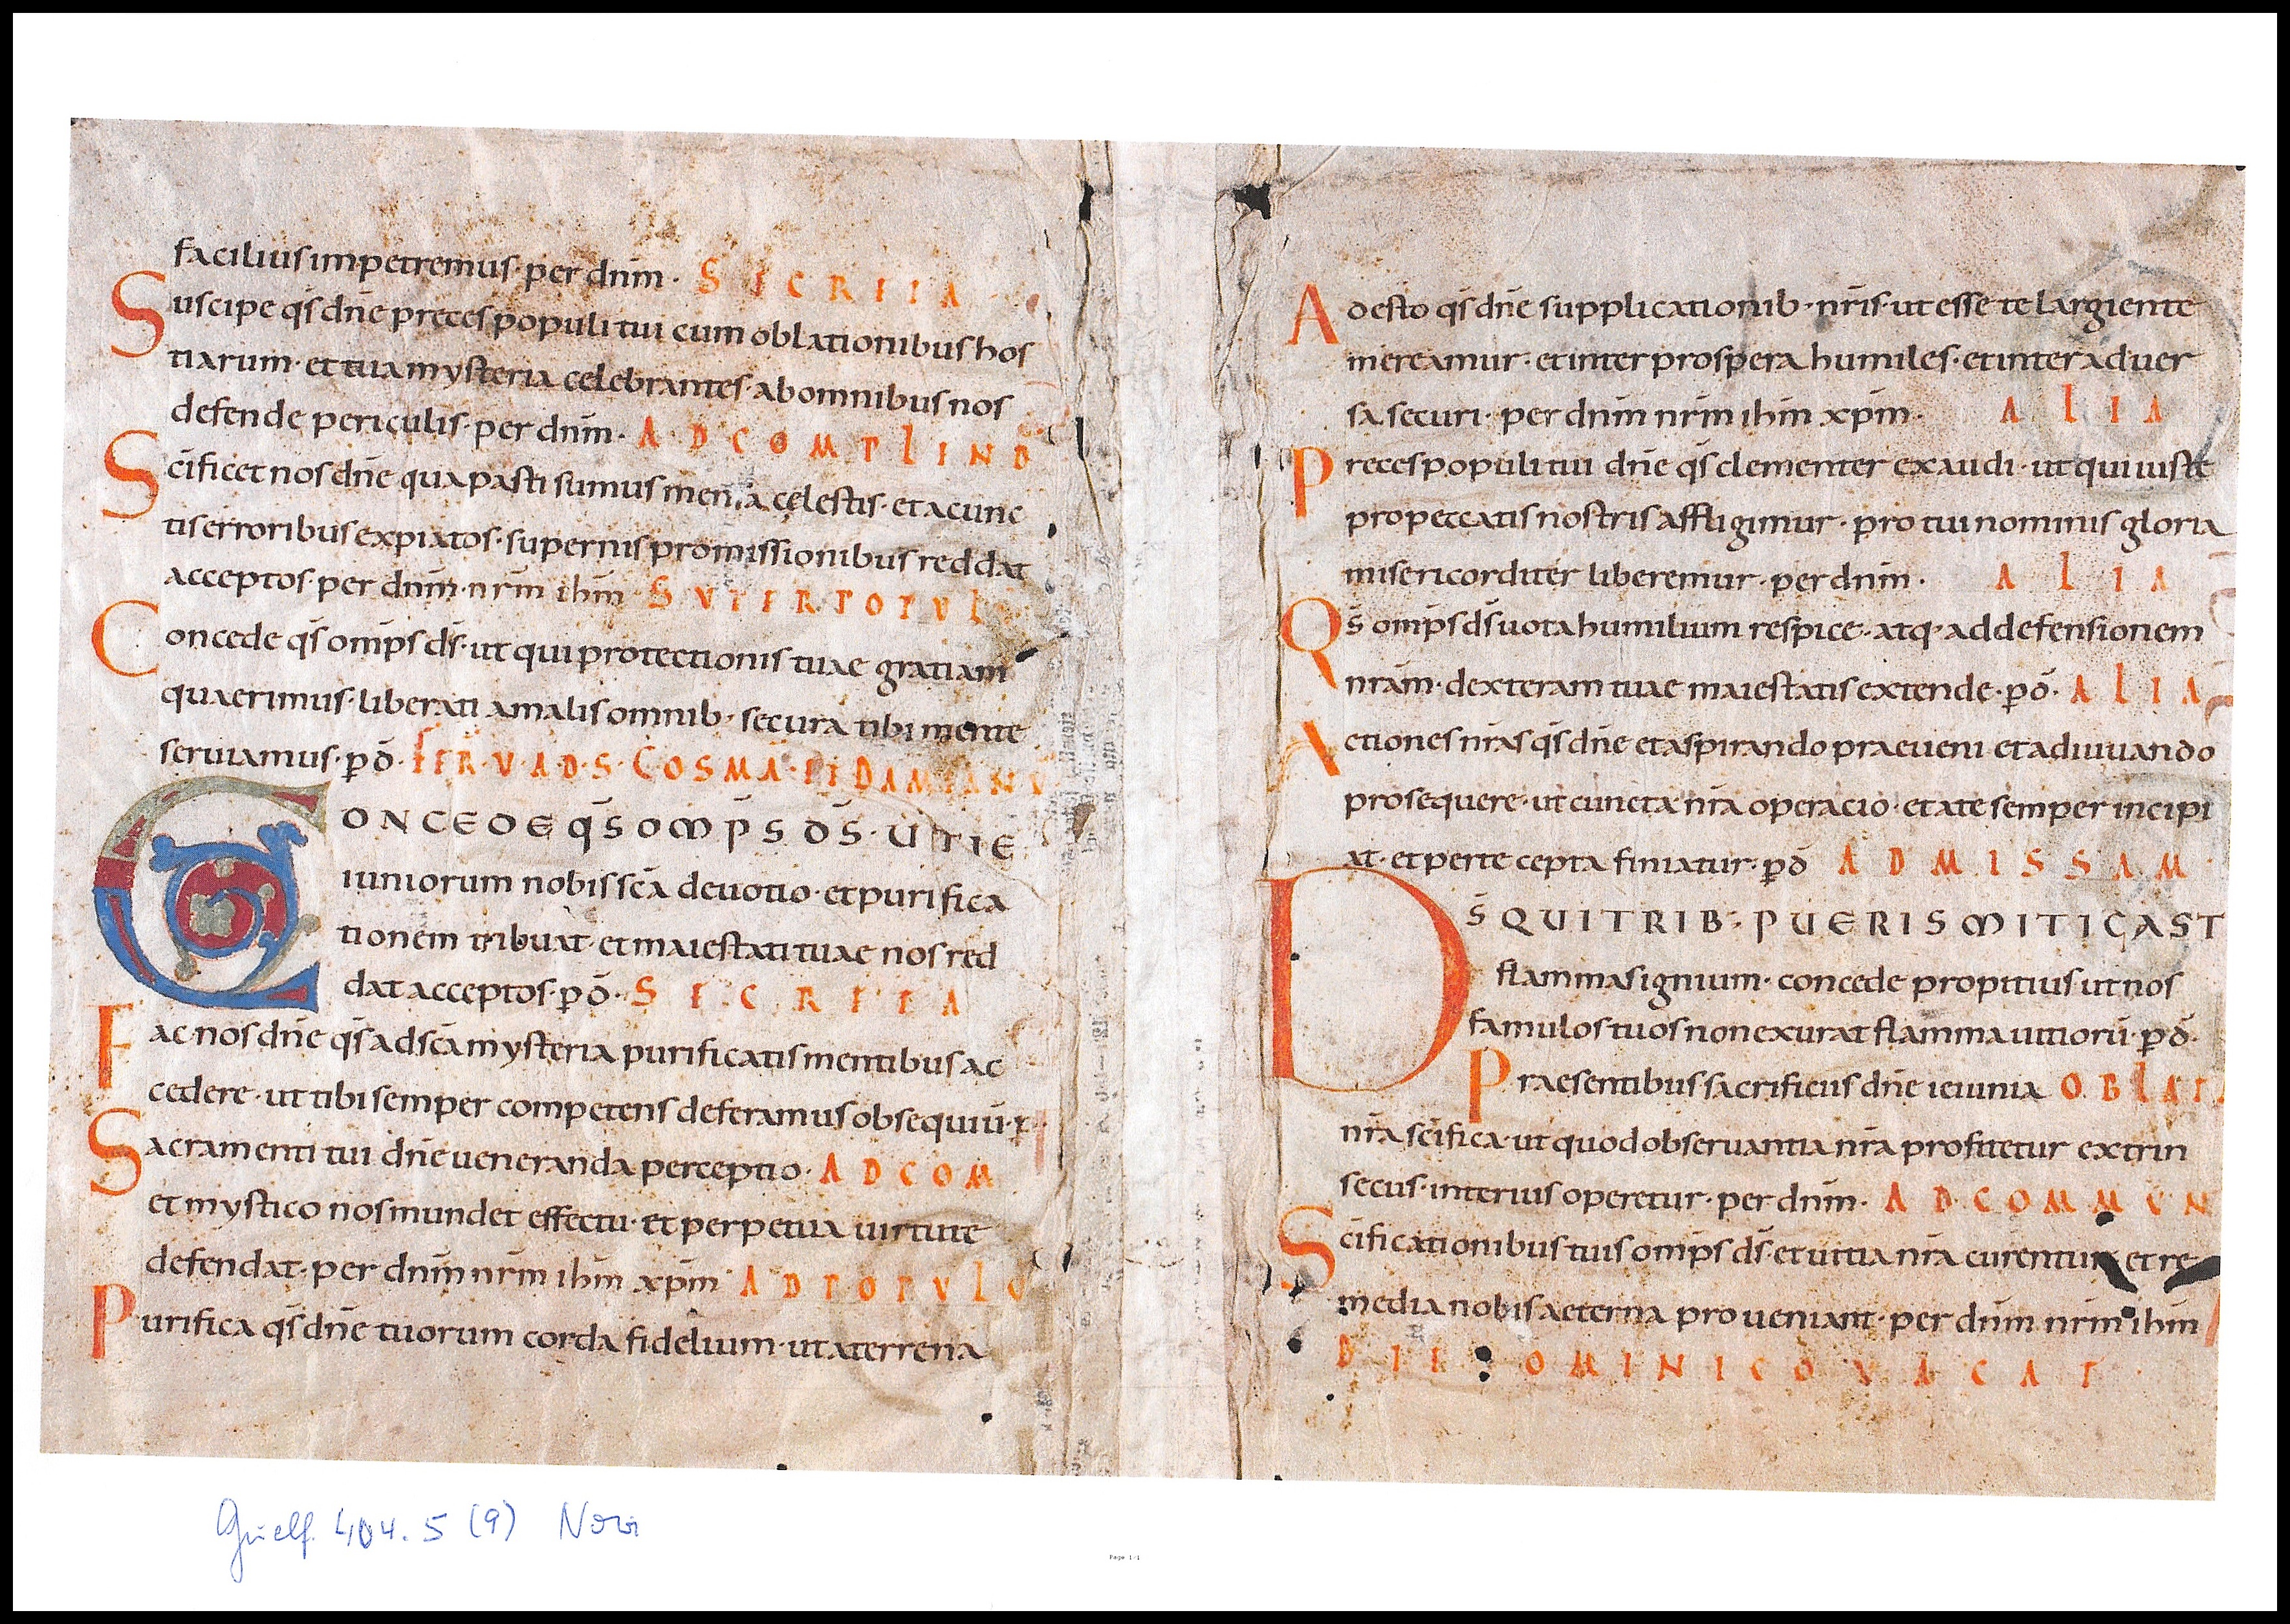 facilius impetremus· per dnm̄· SECRETA
Suscipe qs̄ dnē preces populi tui cum oblationibus hos
tiarum· et tua mysteria celebrantes· ab omnibus nos
defende periculis· per dnm̄· AD COMPLEND
Scīficet nos dnē qua pasti sumus mensa cęlestis· et a cunc
tis erroribus expiatos· supernis promissionibus reddat
acceptos· per dnm̄· nrm̄ ihm̄ SUPER POPUL
Concede qs̄ omp̄s ds̄· ut qui protectionis tuae gratiam
quaerimus· liberati a malis omnib· secura tibi mente
seruiamus· p̄ō· FER·V·AD·S·COSMA·ET DAMIANU
CONCEDE QS̄ OMP̄S DS̄· UT IE
iuniorum nobis scā deuotio· et purifica
tionem tribuat· et maiestati tuae nos red
dat acceptos· p̄ō· SECRETA
Fac nos dnē qs̄ ad scā mysteria purificatis mentibus ac
cedere· ut tibi semper competens deferamus obsequiū· p
Sacramenti tui dnē ueneranda perceptio· AD COM
et mystico nos mundet effectu· et perpetua uirtute
defendat· per dnm̄ nrm̄ ihm̄ xpm̄ AD POPULO
Purifica qs̄ dnē tuorum corda fidelium· ut a terrena
Adesto qs̄ dnē supplicationib· nrīs· ut esse te largiente
mereamur· et inter prospera humiles· et inter aduer
sa securi· per dnm̄ nrm̄ ihm̄ xpm̄· ALIA
Preces populi tui dnē qs̄ clementer exaudi· ut qui iuste
pro peccatis nostris affligimur· pro tui nominis gloria
misericorditer liberemur· per dnm̄· ALIA
Qs̄ omp̄s ds̄ uota humilium respice· atq· ad defensionem
nrām· dexteram tuae maiestatis extende· p̄ō· ALIA
Actiones nrās qs̄ dnē et aspirando praeueni et adiuuando
prosequere· ut cuncta nrā operacio· et a te semper incipi
at· et per te cepta finiatur· p̄ō ADMISSAM
DS̄ QUI TRIB· PUERIS MITICAST
flammas ignium· concede propitius ut nos
famulos tuos non exurat flamma uitiorū· p̄ō·
Praesentibus sacrificiis dnē ieiunia OBLATA
nrā scīfica· ut quod obseruantia nrā profitetur extrin
secus· interius operetur· per dnm̄· AD COMMUN
Scīficationibus tuis omp̄s ds̄ et uitia nrā curentur et re
media nobis aeterna proueniant· per dnm̄ nrm̄ ihm̄
DIE DOMINICO VACAT
Guelf. 404.5 (9) Novi
Page 1/1